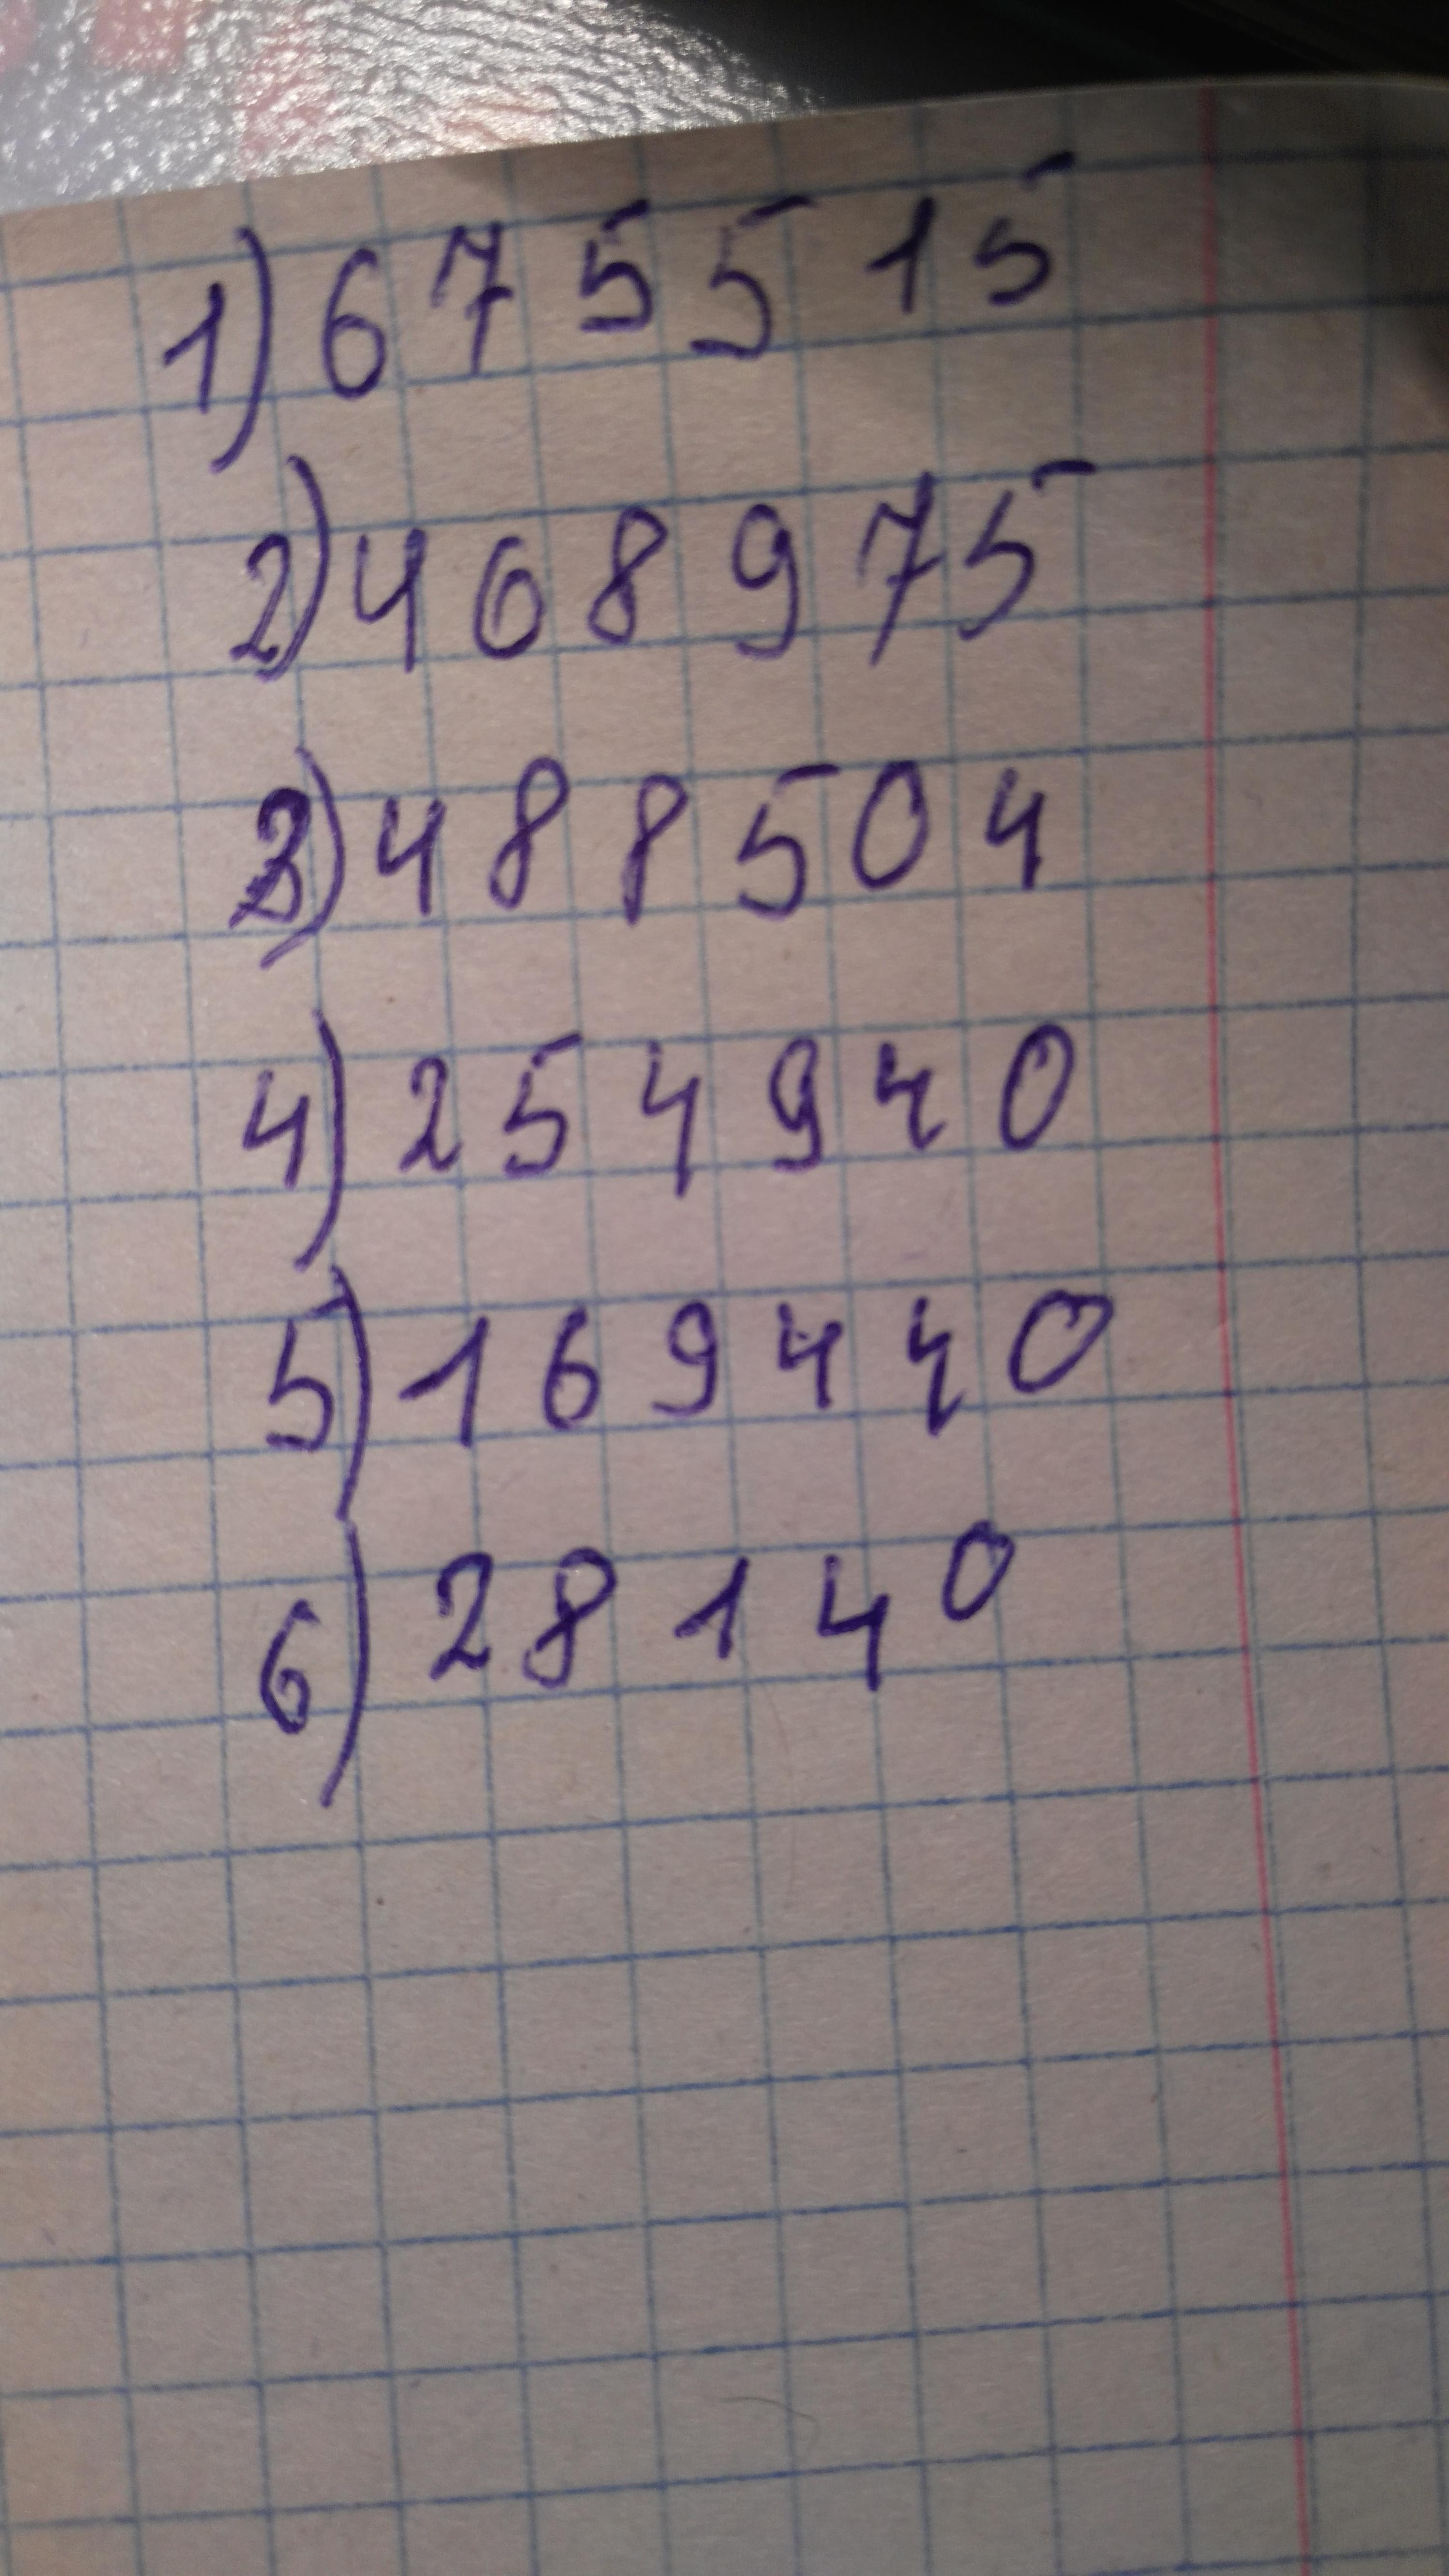 1) 675515
2) 468975
3) 488504
4) 254940
5) 169440
6) 28140